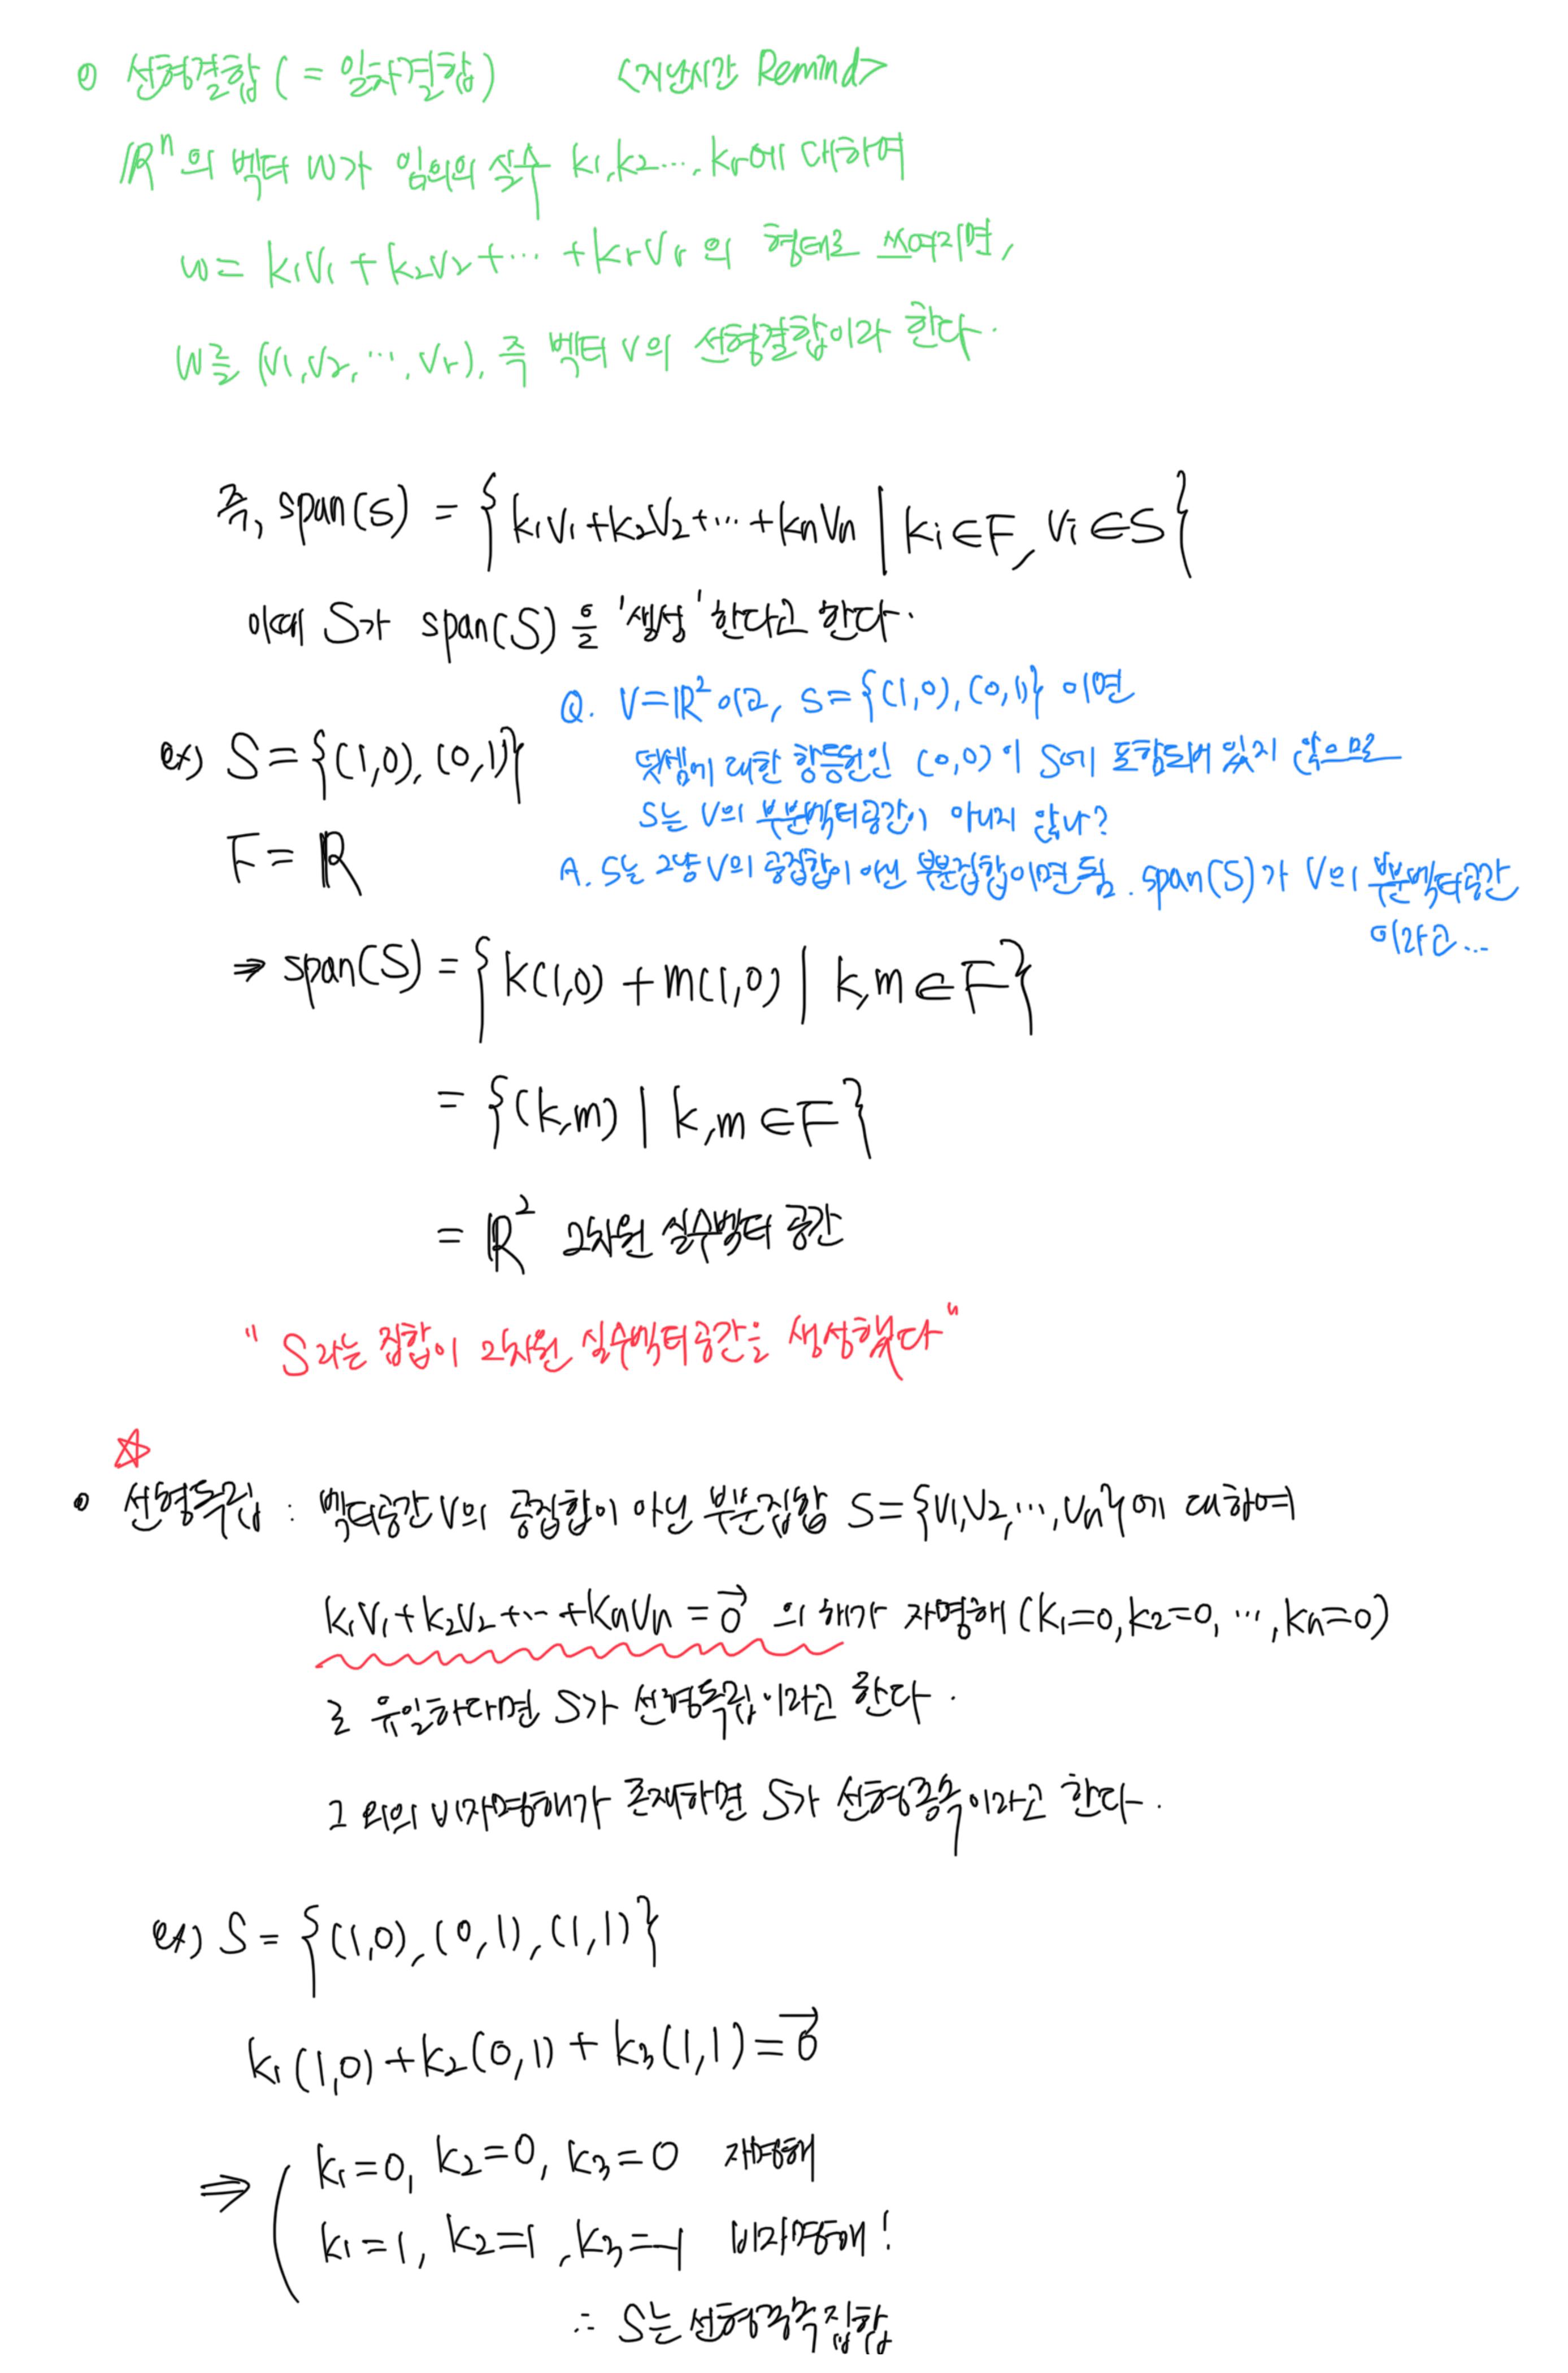 o 선형결합 (= 일차결합) <지난시간 Remind>
ℝⁿ의 벡터 w가 임의의 실수 k₁,k₂…,kᵣ에 대하여
w = k₁v₁ + k₂v₂ + ⋯ + kᵣvᵣ 의 형태로 쓰여지면,
w를 (v₁,v₂,⋯,vᵣ), 즉 벡터 v의 선형결합이라 한다.
즉, span(S) = {k₁v₁+k₂v₂+⋯+kₙvₙ | kᵢ∈F, vᵢ∈S}
이때 S가 span(S)을 '생성'한다고 한다.
Q. V=ℝ²이고, S={(1,0),(0,1)} 이면
덧셈에 대한 항등원인 (0,0)이 S에 포함되어 있지 않으므로
S는 V의 부분벡터공간이 아니지 않나?
A. S는 그냥 V의 공집합이 아닌 부분집합이면 됨. span(S)가 V의 부분벡터공간
이라고...
ex) S={(1,0),(0,1)}
F=ℝ
⇒ span(S) = {k(1,0)+m(1,0) | k,m∈F}
= {(k,m) | k,m∈F}
= ℝ² 2차원 실수벡터 공간
"S라는 집합이 2차원 실수벡터공간을 생성했다"
☆
o 선형독립 : 벡터공간 V의 공집합이 아닌 부분집합 S={v₁,v₂,⋯,vₙ}에 대하여
k₁v₁+k₂v₂+⋯+kₙvₙ=0⃗ 의 해가 자명해(k₁=0,k₂=0,⋯,kₙ=0)
로 유일하다면 S가 선형독립이라고 한다.
그 외의 비자명해가 존재하면 S가 선형종속이라고 한다.
ex) S={(1,0),(0,1),(1,1)}
k₁(1,0)+k₂(0,1)+k₃(1,1)=0⃗
⇒ ( k₁=0, k₂=0, k₃=0 자명해
k₁=1, k₂=1, k₃=-1 비자명해!
∴ S는 선형종속집합